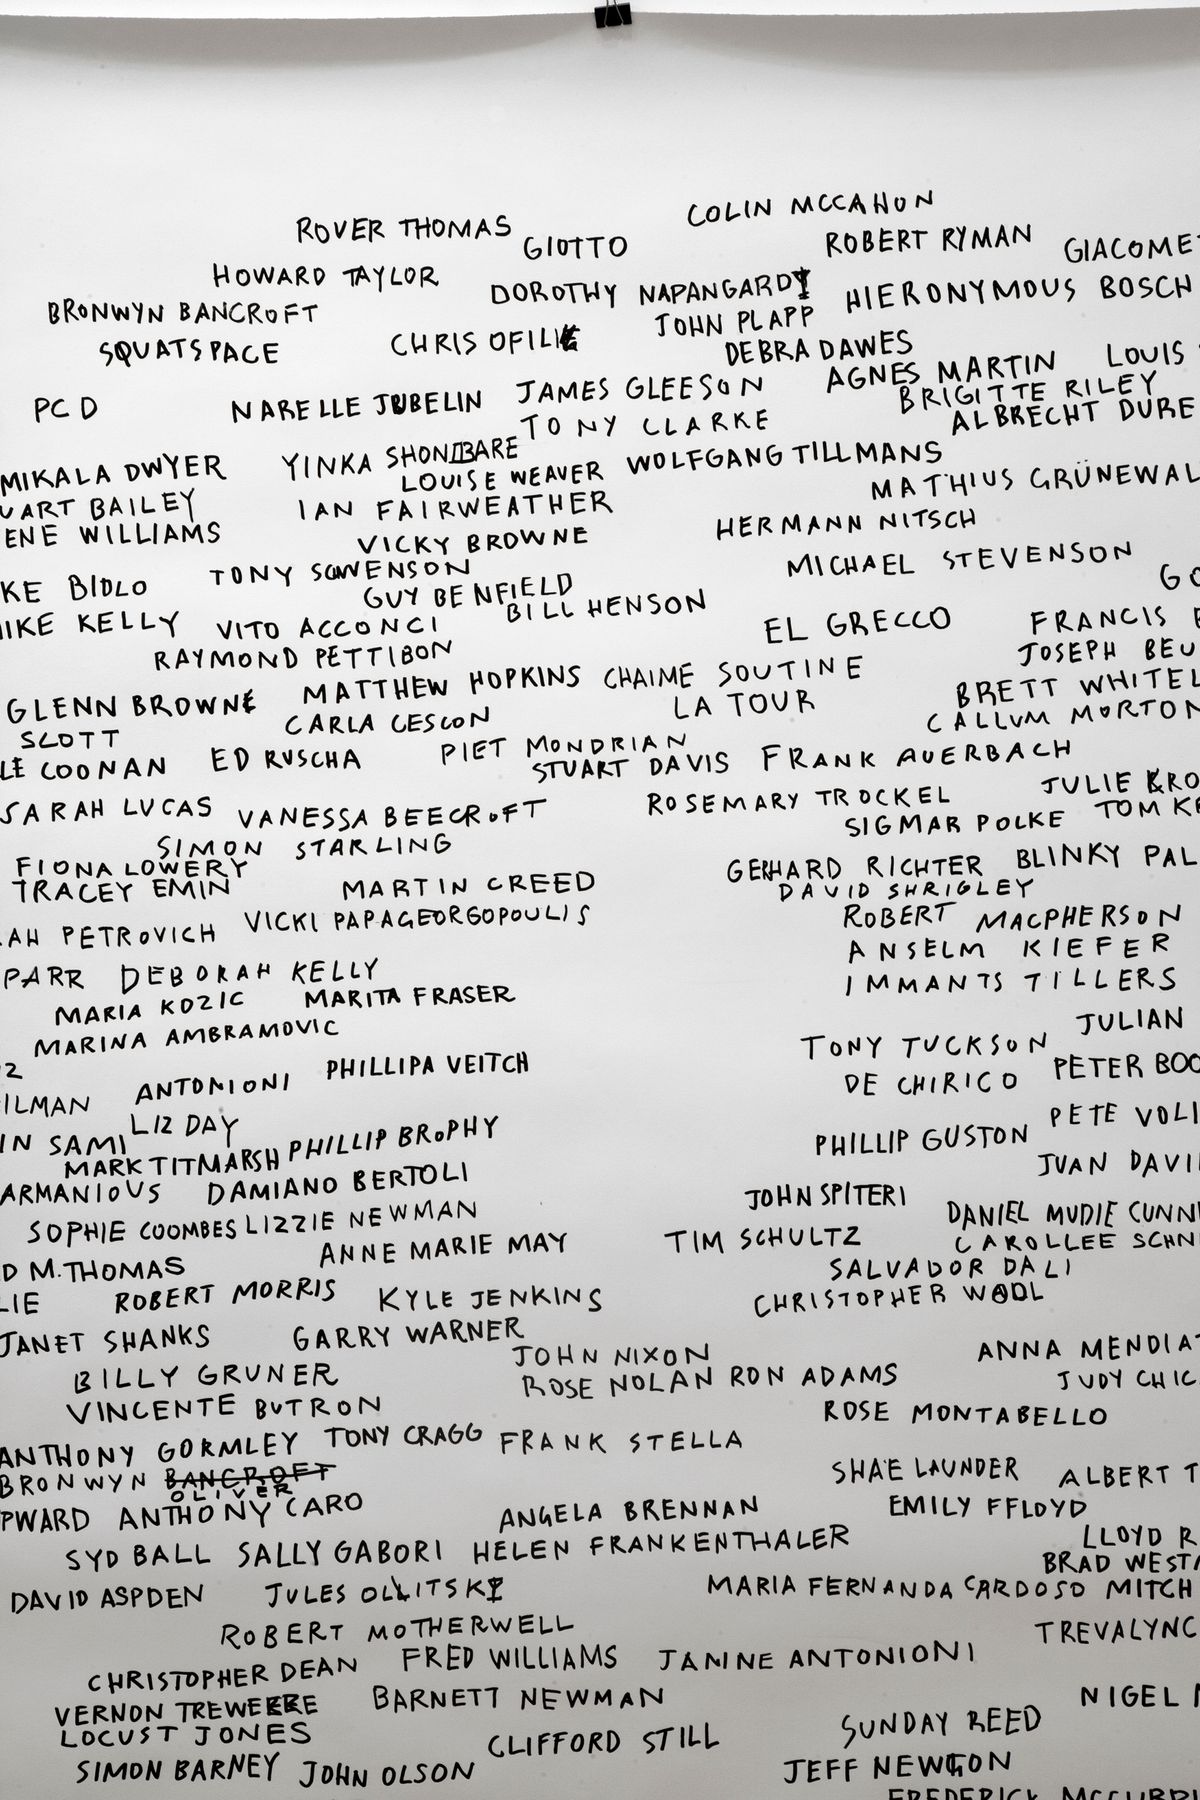 COLIN MCCAHON
ROVER THOMAS
GIOTTO
ROBERT RYMAN
GIACOME
HOWARD TAYLOR
DOROTHY NAPANGARDI
HIERONYMOUS BOSCH
BRONWYN BANCROFT
JOHN PLAPP
SQUATSPACE
CHRIS OFILI
DEBRA DAWES
LOUIS
AGNES MARTIN
JAMES GLEESON
BRIGITTE RILEY
PCD
NARELLE JUBELIN
ALBRECHT DURE
TONY CLARKE
YINKA SHONIBARE
WOLFGANG TILLMANS
MIKALA DWYER
LOUISE WEAVER
MATHIUS GRÜNEWAL
UART BAILEY
IAN FAIRWEATHER
HERMANN NITSCH
ENE WILLIAMS
VICKY BROWNE
MICHAEL STEVENSON
KE BIDLO
TONY SCWENSON
GO
GUY BENFIELD
BILL HENSON
IKE KELLY
VITO ACCONCI
EL GRECCO
FRANCIS
RAYMOND PETTIBON
JOSEPH BEU
MATTHEW HOPKINS
CHAIME SOUTINE
BRETT WHITEL
GLENN BROWNE
LA TOUR
CALLUM MORTON
SCOTT
CARLA CESCON
PIET MONDRIAN
LE COONAN
ED RUSCHA
STUART DAVIS
FRANK AUERBACH
JULIE KRO
SARAH LUCAS
VANESSA BEECROFT
ROSEMARY TROCKEL
TOM KE
SIGMAR POLKE
SIMON STARLING
FIONA LOWERY
GERHARD RICHTER
BLINKY PAL
TRACEY EMIN
MARTIN CREED
DAVID SHRIGLEY
AH PETROVICH
VICKI PAPAGEORGOPOULIS
ROBERT MACPHERSON
ANSELM KIEFER
PARR
DEBORAH KELLY
IMMANTS TILLERS
MARIA KOZIC
MARITA FRASER
MARINA AMBRAMOVIC
JULIAN
TONY TUCKSON
PHILLIPA VEITCH
PETER BOO
ANTONIONI
DE CHIRICO
ILMAN
LIZ DAY
PETE VOLI
IN SAMI
PHILLIP BROPHY
PHILLIP GUSTON
MARK TITMARSH
JUAN DAVI
ARMANIOUS
DAMIANO BERTOLI
JOHN SPITERI
SOPHIE COOMBES
LIZZIE NEWMAN
DANIEL MUDIE CUNNI
ANNE MARIE MAY
TIM SCHULTZ
CAROLLEE SCHN
D M. THOMAS
SALVADOR DALI
LIE
ROBERT MORRIS
KYLE JENKINS
CHRISTOPHER WOOL
JANET SHANKS
GARRY WARNER
JOHN NIXON
ANNA MENDIA
BILLY GRUNER
ROSE NOLAN
RON ADAMS
JUDY CHIC
VINCENTE BUTRON
ROSE MONTABELLO
ANTHONY GORMLEY
TONY CRAGG
FRANK STELLA
BRONWYN BANCROFT
OLIVER
SHAE LAUNDER
ALBERT T
PWARD
ANTHONY CARO
ANGELA BRENNAN
EMILY FFLOYD
SYD BALL
SALLY GABORI
HELEN FRANKENTHALER
LLOYD R
BRAD WESTA
DAVID ASPDEN
JULES OLLITSKI
MARIA FERNANDA CARDOSO
MITCH
ROBERT MOTHERWELL
TREVALYNC
CHRISTOPHER DEAN
FRED WILLIAMS
JANINE ANTONIONI
VERNON TREWEEKE
BARNETT NEWMAN
NIGEL
LOCUST JONES
CLIFFORD STILL
SUNDAY REED
SIMON BARNEY
JOHN OLSON
JEFF NEWTON
FREDERICK MCCUBBI